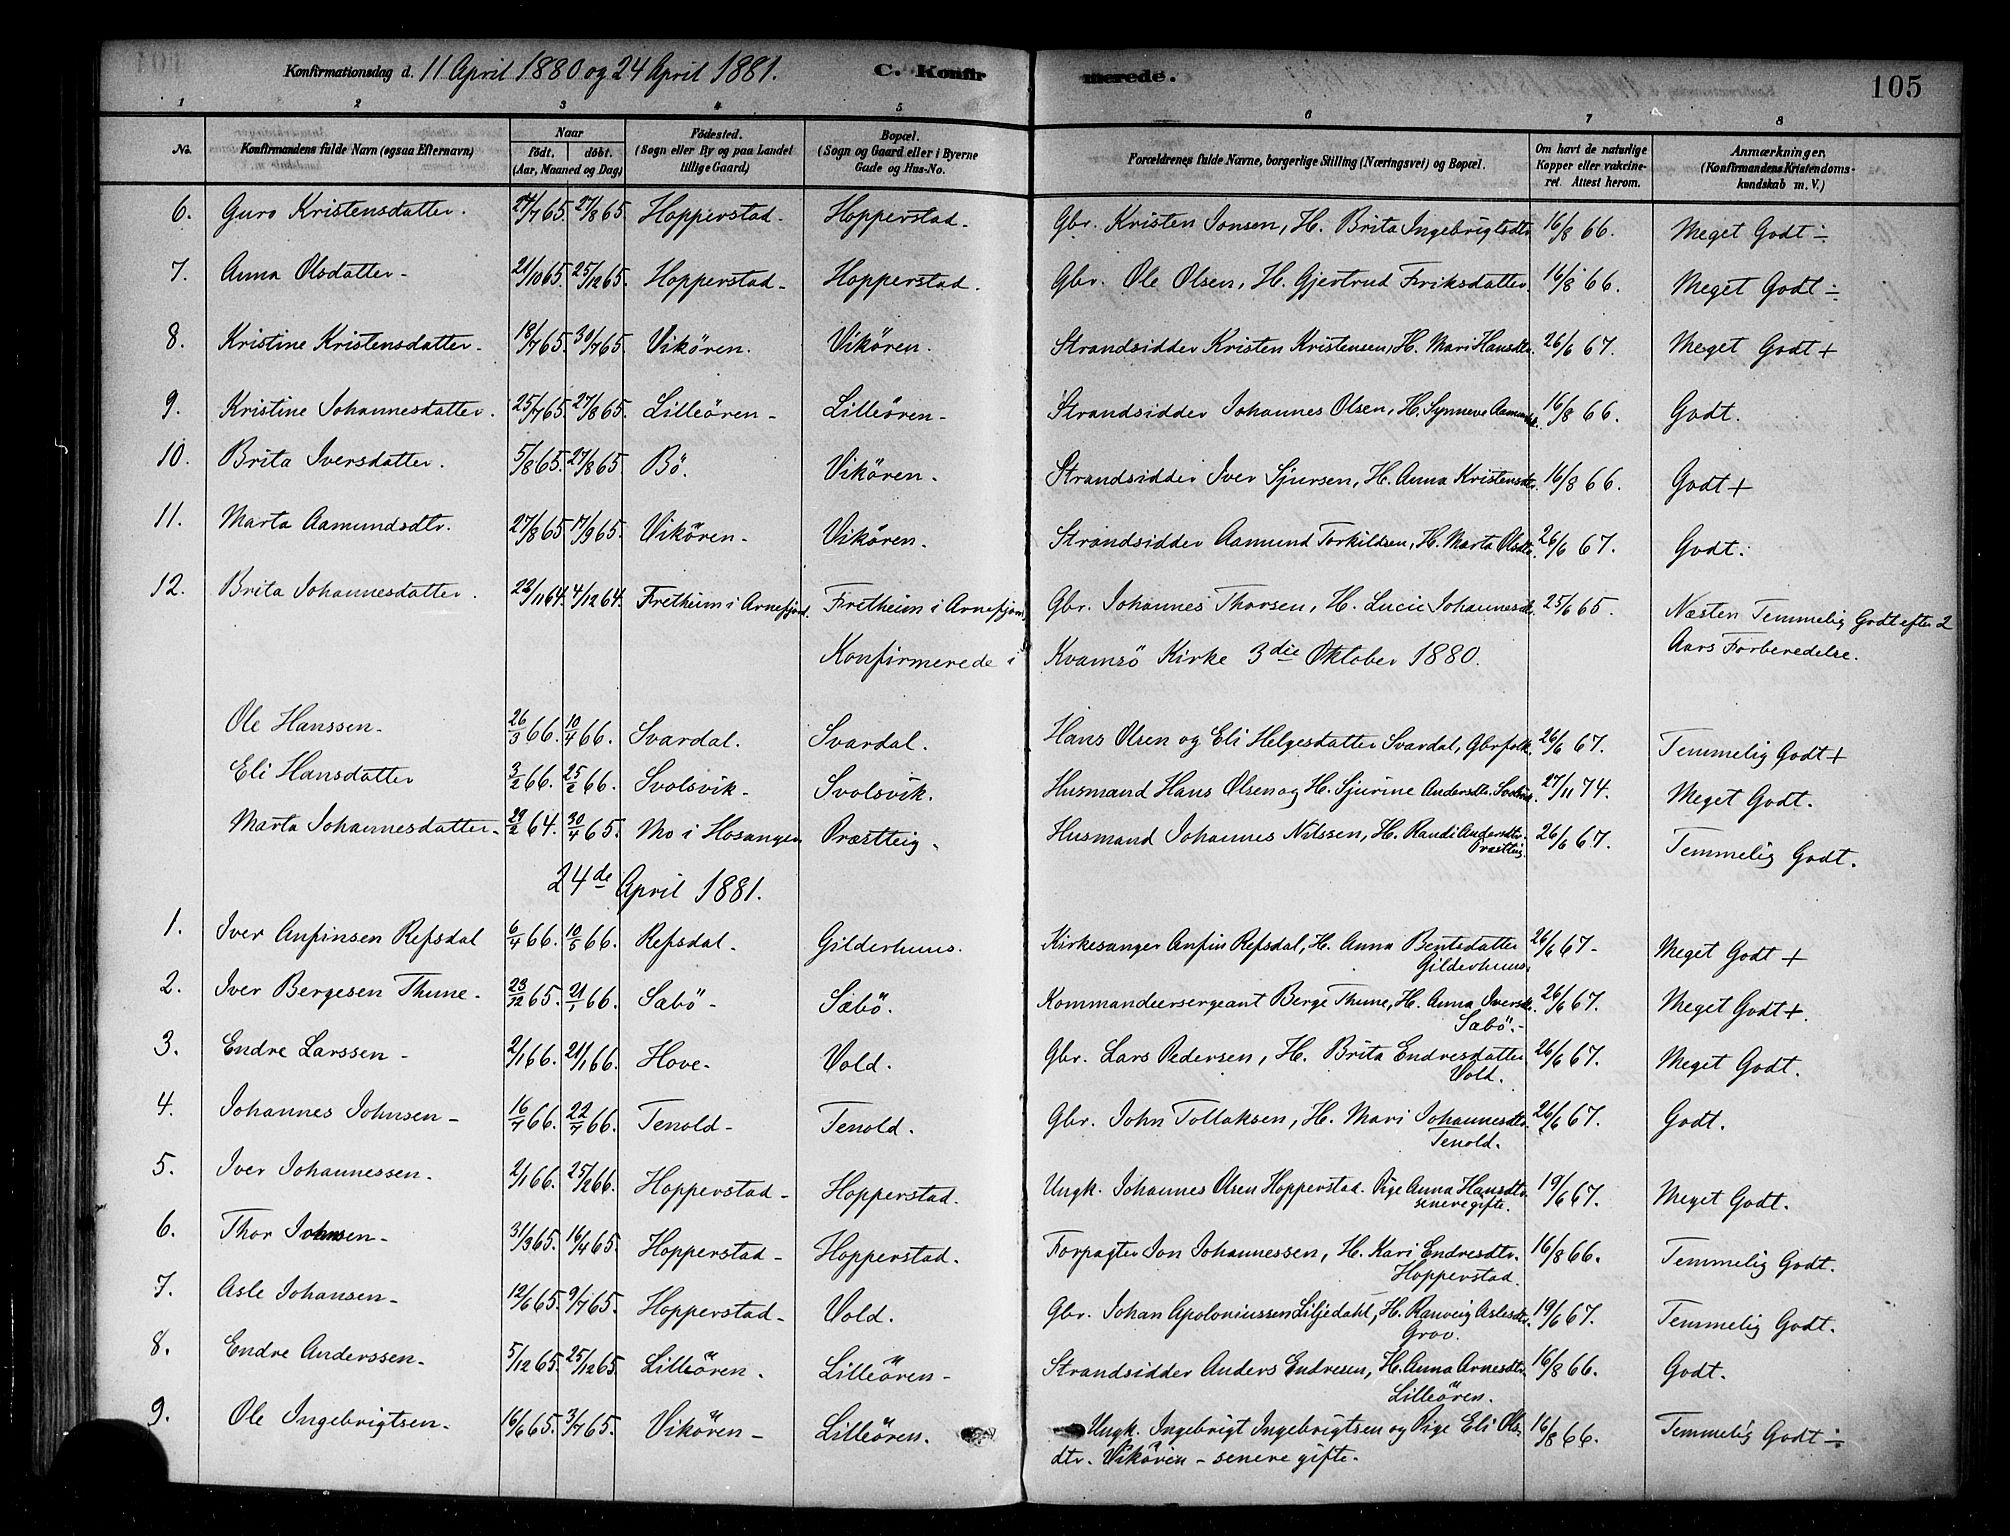 Konfirmationsdag d. 11 April 1880 og 24 April 1881. C. Konfirmerede. 105
1 2 3 4 5 6 7 8
No. Konfirmandens fulde Navn (ogsaa Efternavn) Naar født, døbt. (Aar, Maaned og Dag) Födested. (Sogn eller By og paa Landet tillige Gaard) Bopæl. (Sogn og Gaard eller i Byerne Gade og Hus-No. Forældrenes fulde Navne, borgerlige Stilling (Næringsvei) og Bopæl. Om havt de naturlige Kopper eller vakcineret. Attest herom. Anmærkninger. (Konfirmandens Kristendomskundskab m. V.)
6. Guro Kristensdatter. 27/8 65. Hopperstad. Hopperstad. Gbr. Kristen Jonsen, H. Brita Ingebrigtsdtr. 16/8 66. Meget Godt ÷
7. Anna Olsdatter 21/10 65. 25/12 65. Hopperstad Hopperstad. Gbr. Ole Olsen, H. Gjertrud Eriksdatter 16/8 66. Meget Godt ÷
8. Kristine Kristensdatter 18/7 65. 30/7 65. Vikören. Vikören. Strandsidder Kristen Kristensen, H. Mari Hansdtr. 26/6 67. Meget Godt +
9. Kristine Johannesdatter. 25/7 65. 27/8 65. Lilleören Lilleören Strandsidder Johannes Olsen, H. Synneve 16/8 66. Godt.
10. Brita Iversdatter. 5/8 65. 27/8 65. Bö. Vikören. Strandsidder Iver Sjursen, H. Anna Kristensdtr. 16/8 66. Godt +
11. Marta Aamundsdtr. 27/8 65. 17/9 65. Vikören Vikören. Strandsidder Aamund Torkildsen, H. Marta Olsdtr. 26/6 67. Godt.
12. Brita Johannesdatter. 22/11 64. 4/12 64. Fretheim i Arnefjord. Fretheim i Arnefjord Gbr. Johannes Thorsen, H. Lucie Johannesdtr. 25/6 65. Næsten Temmelig Godt efter 2 Aars Forberedelse.
Konfirmerede i Kvamsø Kirke 3die Oktober 1880.
Ole Hanssen 26/3 66. 10/4 66. Svardal. Svardal. Hans Olsen og Eli Helgesdatter Svardal, Gbrfolk. 26/6 67. Temmelig Godt +
Eli Hansdatter 3/2 66. 25/2 66. Svolsvik. Svolsvik. Husmand Hans Olsen og H. Sjurine Andersdtr. Svolsvik. 27/11 74. Meget Godt.
Marta Johannesdatter 29/2 64. 30/4 65. Mo i Hosanger Præstteig. Husmand Johannes Nilssen, H. Randi Andersdtr. Præstteig. 26/6 67. Temmelig Godt.
24de April 1881.
1. Iver Anfinsen Refsdal 6/4 66. 10/5 66. Refsdal. Gilderhuus. Kirkesanger Anfin Refsdal, H. Anna Bentsdatter Gilderhuus. 26/6 67. Meget Godt +
2. Iver Bergesen Thune 23/12 65. 21/1 66. Sæbö Sæbö. Kommandeersergeant Berge Thune, H. Anna Iversdtr. Sæbö. 26/6 67. Meget Godt +.
3. Endre Larssen 2/1 66. 21/1 66. Hove. Vold. Gbr. Lars Pedersen, H. Brita Endresdatter Vold. 26/6 67. Meget Godt.
4. Johannes Johnsen 16/7 66. 22/7 66. Tenold Tenold. Gbr. John Tollaksen, H. Mari Johannesdtr. Tenold. 26/6 67. Godt.
5. Iver Johannessen. 2/1 66. 25/2 66. Hopperstad Hopperstad. Ungk. Johannes Olsen Hopperstad. Pige Anna Hansdtr. senere gifte. 19/6 67. Meget Godt.
6. Thor 31/3 65. 16/4 65. Hopperstad Hopperstad. Forpagter Jon Johannessen, H. Kari Endresdtr. Hopperstad. 16/8 66. Temmelig Godt.
7. Asle Johansen 12/6 65. 9/7 65. Hopperstad Vold. Gbr. Johan Apoloniussen Liljedahl, H. Ranveig Aslesdtr. Grov. 19/6 67. Temmelig Godt.
8. Endre Anderssen 5/12 65. 25/12 65. Lilleören. Lilleören Strandsidder Anders Endresen, H. Anna Arnesdtr. Lilleören. 16/8 66. Godt.
9. Ole Ingebrigtsen 16/6 65. 3/7 65. Vikören Lilleören. Ungk. Ingebrigt Ingebrigtsen og Pige Eli Olsdtr. Vikören – senere gifte. 16/8 66. Temmelig Godt ÷